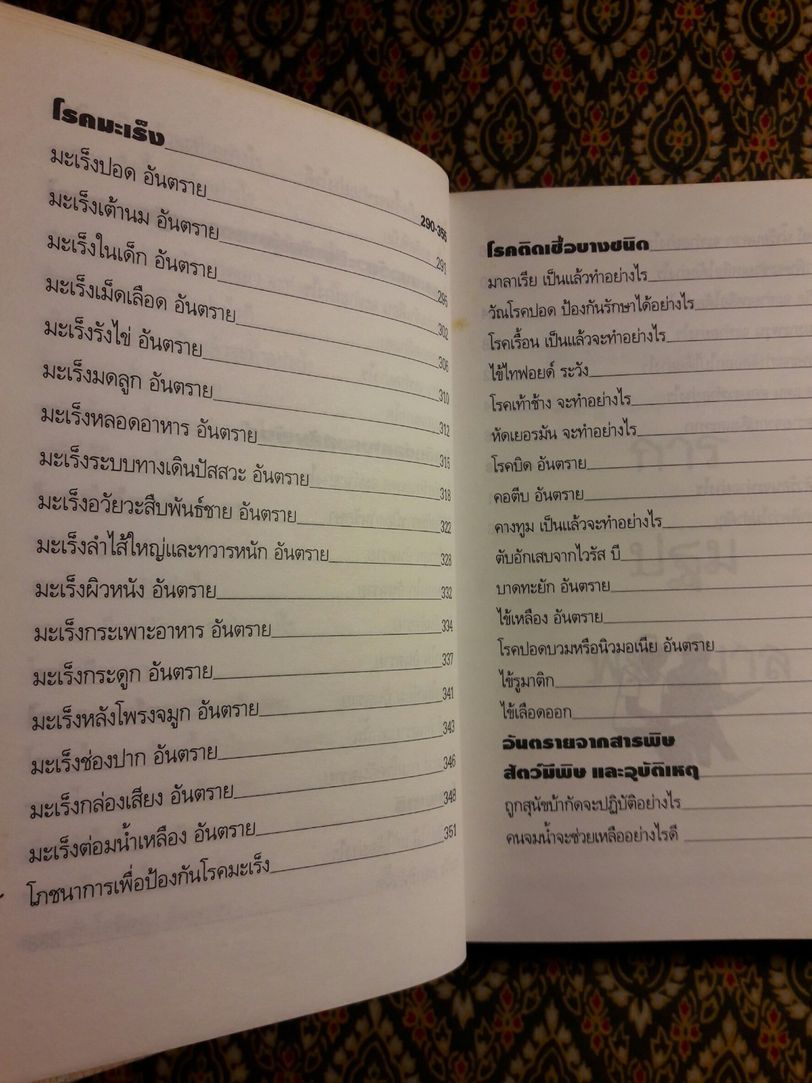 โรคมะเร็ง 290-355
มะเร็งปอด อันตราย 291
มะเร็งเต้านม อันตราย 296
มะเร็งในเด็ก อันตราย 302
มะเร็งเม็ดเลือด อันตราย 306
มะเร็งรังไข่ อันตราย 310
มะเร็งมดลูก อันตราย 312
มะเร็งหลอดอาหาร อันตราย 316
มะเร็งระบบทางเดินปัสสวะ อันตราย 318
มะเร็งอวัยวะสืบพันธ์ชาย อันตราย 322
มะเร็งลำไส้ใหญ่และทวารหนัก อันตราย 328
มะเร็งผิวหนัง อันตราย 332
มะเร็งกระเพาะอาหาร อันตราย 334
มะเร็งกระดูก อันตราย 337
มะเร็งหลังโพรงจมูก อันตราย 341
มะเร็งช่องปาก อันตราย 343
มะเร็งกล่องเสียง อันตราย 346
มะเร็งต่อมน้ำเหลือง อันตราย 348
โภชนาการเพื่อป้องกันโรคมะเร็ง 351
โรคติดเชื้อบางชนิด
มาลาเรีย เป็นแล้วทำอย่างไร
วัณโรคปอด ป้องกันรักษาได้อย่างไร
โรคเรื้อน เป็นแล้วจะทำอย่างไร
ไข้ไทฟอยด์ ระวัง
โรคเท้าช้าง จะทำอย่างไร
หัดเยอรมัน จะทำอย่างไร
โรคบิด อันตราย
คอตีบ อันตราย
คางทูม เป็นแล้วจะทำอย่างไร
ตับอักเสบจากไวรัส บี
บาดทะยัก อันตราย
ไข้เหลือง อันตราย
โรคปอดบวมหรือนิวมอเนีย อันตราย
ไข้รูมาติก
ไข้เลือดออก
อันตรายจากสารพิษ
สัตว์มีพิษ และอุบัติเหตุ
ถูกสุนัขบ้ากัดจะปฏิบัติอย่างไร
คนจมน้ำจะช่วยเหลืออย่างไรดี